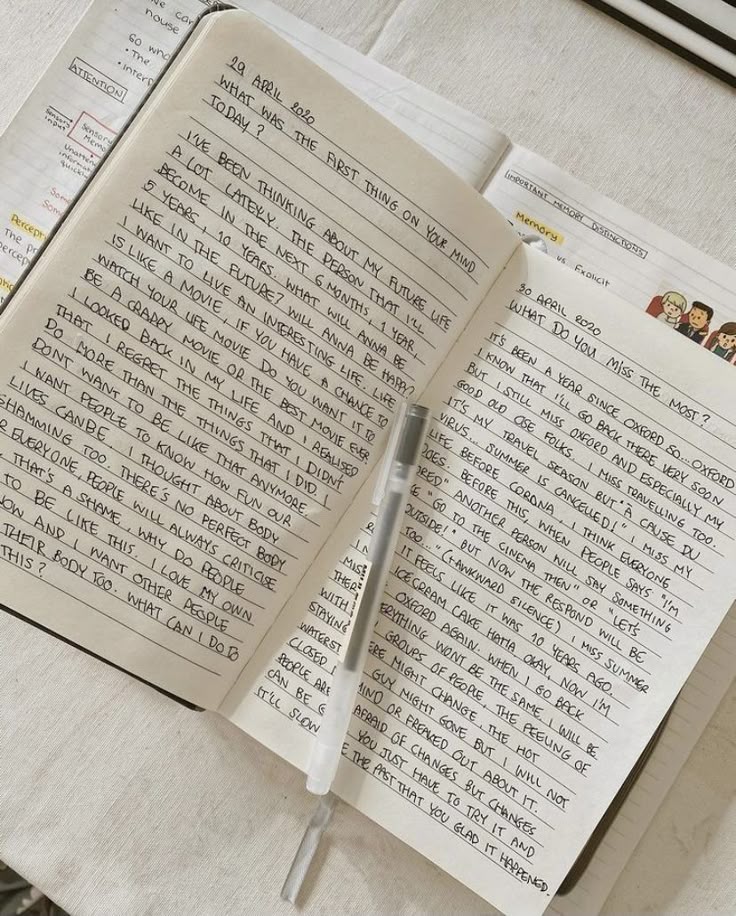 we can
house
Go who
• The
• interp
ATTENTION
Sensory
Input
Sensory
Memo
Unatten
information
quickly
Som
Som
Percept
The pr
percep
29 APRIL 2020
WHAT WAS THE FIRST THING ON YOUR MIND
TODAY?
I'VE BEEN THINKING ABOUT MY FUTURE LIFE
A LOT LATELY. THE PERSON THAT I'LL
BECOME IN THE NEXT 6 MONTHS, 1 YEAR,
5 YEARS, 10 YEARS. WHAT WILL ANNA BE
LIKE IN THE FUTURE? WILL ANNA BE HAPPY?
I WANT TO LIVE AN INTERESTING LIFE. LIFE
IS LIKE A MOVIE, IF YOU HAVE A CHANCE TO
WATCH YOUR LIFE MOVIE DO YOU WANT IT TO
BE A CRAPPY MOVIE OR THE BEST MOVIE EVER
I LOOKED BACK IN MY LIFE AND I REALISED
THAT I REGRET THE THINGS THAT I DIDN'T
DO MORE THAN THE THINGS THAT I DID. I
DONT WANT TO BE LIKE THAT ANYMORE.
I WANT PEOPLE TO KNOW HOW FUN OUR
LIVES CAN BE. I THOUGHT ABOUT BODY
SHAMMING TOO. THERE'S NO PERFECT BODY
R EVERYONE, PEOPLE WILL ALWAYS CRITICISE
THAT'S A SHAME, WHY DO PEOPLE
TO BE LIKE THIS. I LOVE MY OWN
OW AND I WANT OTHER PEOPLE
THEIR BODY TOO. WHAT CAN I DO TO
THIS?
IMPORTANT MEMORY DISTINCTIONS
Memory
vs. Explicit
30 APRIL 2020
WHAT DO YOU MISS THE MOST?
IT'S BEEN A YEAR SINCE OXFORD SO... OXFORD
I KNOW THAT I'LL GO BACK THERE VERY SOON
BUT I STILL MISS OXFORD AND ESPECIALLY MY
GOOD OLD OSE FOLKS. I MISS TRAVELLING TOO.
IT'S MY TRAVEL SEASON BUT "A CAUSE DU
VIRUS... SUMMER IS CANCELLED!" I MISS MY
LIFE BEFORE CORONA, I THINK EVERYONE
DOES. BEFORE THIS, WHEN PEOPLE SAYS "I'M
ORED" ANOTHER PERSON WILL SAY SOMETHING
E "GO TO THE CINEMA THEN" OR "LET'S
OUTSIDE!" BUT NOW THE RESPOND WILL BE
TOO..." (*AWKWARD SILENCE) I MISS SUMMER
IT FEELS LIKE IT WAS 10 YEARS AGO.
MISS ICECREAM CAKE HAHA OKAY, NOW I'M
THER OXFORD AGAIN. WHEN I GO BACK
WITH ERYTHING WONT BE THE SAME. I WILL BE
STAYING GROUPS OF PEOPLE, THE FEELING OF
WATERST ERE MIGHT CHANGE, THE HOT
CLOSED GUY MIGHT GONE BUT I WILL NOT
PEOPLE ARE MIND OR FREAKED OUT ABOUT IT.
CAN BE AFRAID OF CHANGES BUT CHANGES
IT'LL SLOW YOU JUST HAVE TO TRY IT AND
E THE PAST THAT YOU GLAD IT HAPPENED.